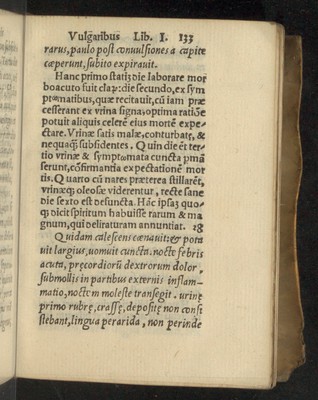 Vulgaribus Lib. I. 133
rarus, paulo post conuulsiones a capite
cœperunt, subito expirauit.
Hanc primo statiȝ die laborare mor
bo acuto fuit claȝ: die secundo, ex sym
ptomatibus, quæ recitauit, cū iam præ
cesserant ex vrina signa, optima ratiōe
potuit aliquis celerē eius mortē expe-
ctare. Vrinæ satis malæ, conturbatę, &
nequaq̄ subsidentes. Quin die et ter-
tio vrinæ & symptomata cuncta pmā
serunt, cōfirmantia expectationē mor
tis. Quarto cū nares præterea stillarēt,
vrinæq; oleosæ viderentur, recte sane
die sexto est defuncta. Hāc ipsaȝ quo-
q; dicit spiritum habuisse rarum & ma
gnum, qui deliraturam annuntiat. 28
Quidam calescens cœnauit: & pota
uit largius, vomuit cuncta, nocte febris
acuta, pręcordiorū dextrorum dolor,
submollis in partibus externis inflam-
matio, noctem moleste transegit. urinę
primo rubrę, crassę, depositę non consi
stebant, lingua perarida, non perinde